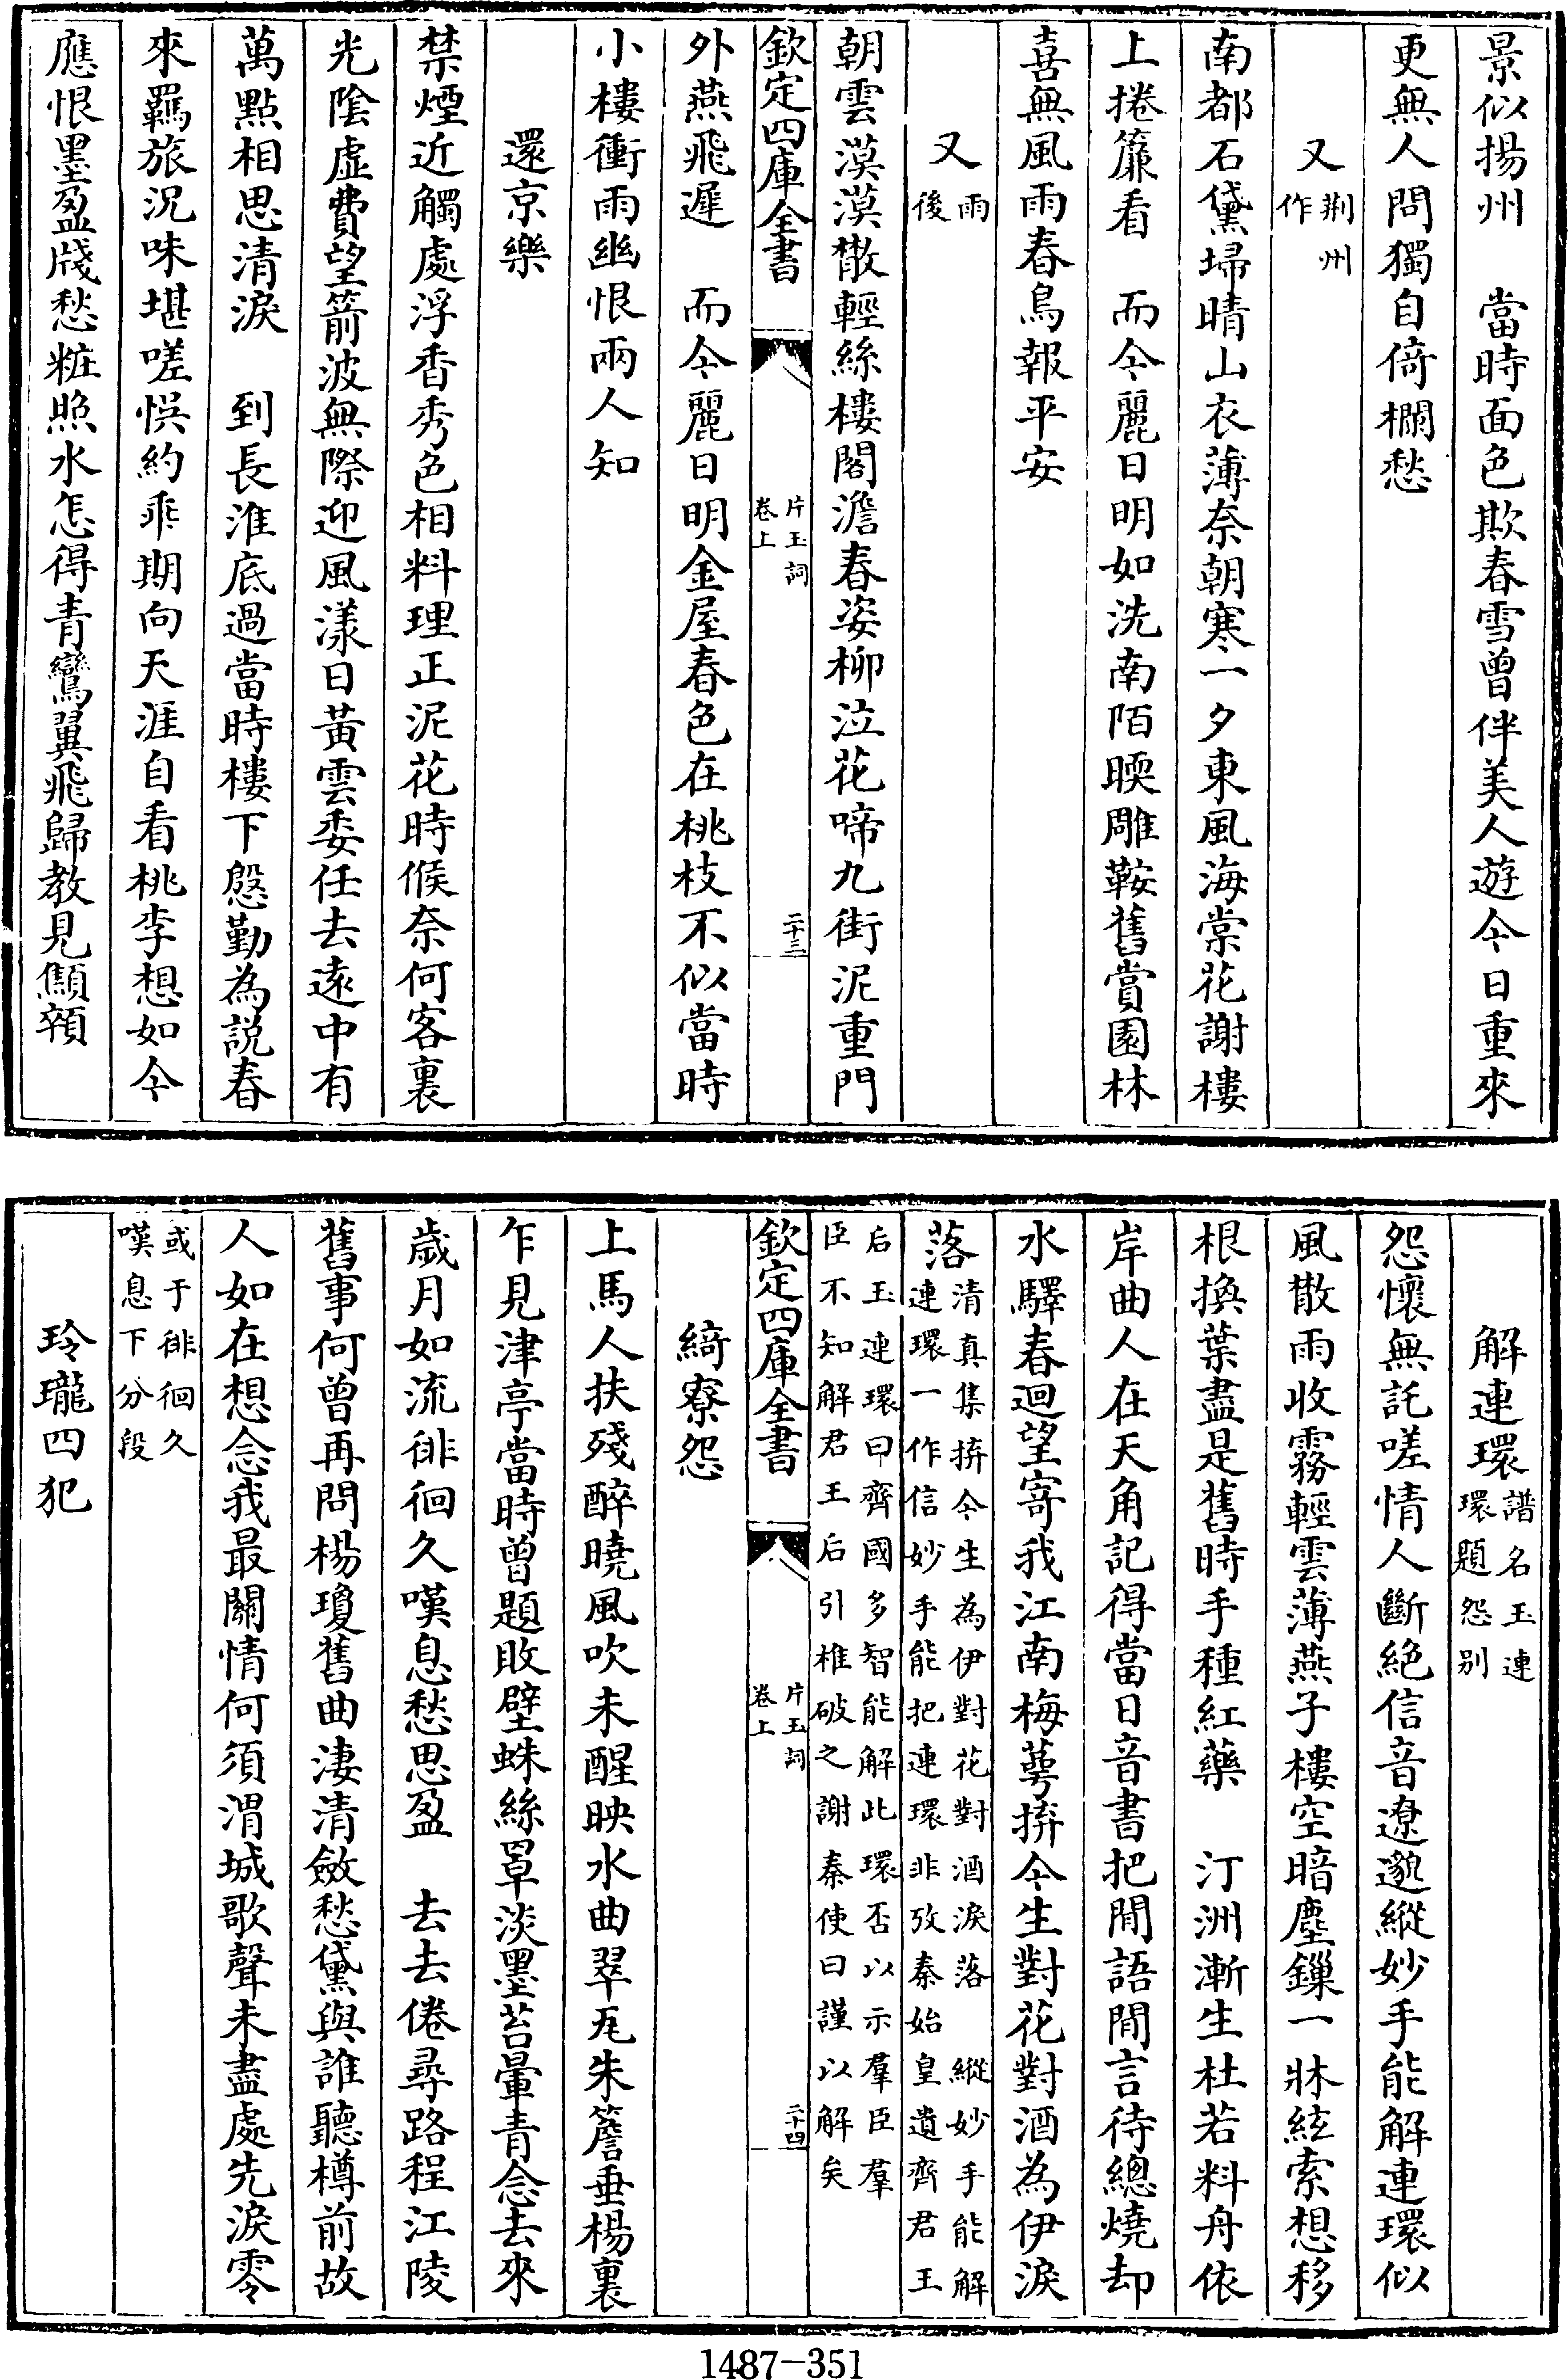 景似揚州　當時面色欺春雪曾伴美人遊今日重來
更無人問獨自倚欄愁
又荆州作
南都石黛埽晴山衣薄奈朝寒一夕東風海棠花謝樓
上捲簾看　而今麗日明如洗南陌暝雕鞍舊賞園林
喜無風雨春鳥報平安
又雨後
朝雲漠漠散輕絲樓閣澹春姿柳泣花啼九街泥重門
欽定四庫全書　片玉詞卷上　二十三
外燕飛遲　而今麗日明金屋春色在桃枝不似當時
小樓衝雨幽恨兩人知
還京樂
禁煙近觸處浮香秀色相料理正泥花時候奈何客裏
光陰虛費望箭波無際迎風漾日黃雲委任去遠中有
萬點相思清淚　到長淮底過當時樓下慇勤為說春
來羈旅況味堪嗟悞約乖期向天涯自看桃李想如今
應恨墨盈牋愁粧照水怎得青鸞翼飛歸教見顦顇
解連環譜名玉連環題怨别
怨懷無託嗟情人斷絕信音遼邈縱妙手能解連環似
風散雨收霧輕雲薄燕子樓空暗塵鏁一牀絃索想移
根換葉盡是舊時手種紅藥　汀洲漸生杜若料舟依
岸曲人在天角記得當日音書把閒語閒言待總燒却
水驛春迴望寄我江南梅萼拚今生對花對酒為伊淚
落清真集拚今生為伊對花對酒淚落　縱妙手能解連環一作信妙手能把連環非攷秦始皇遺齊君王
后玉連環曰齊國多智能解此環否以示羣臣羣臣不知解君王后引椎破之謝秦使曰謹以解矣
欽定四庫全書　片玉詞卷上　二十四
綺寮怨
上馬人扶殘醉曉風吹未醒映水曲翠瓦朱簷垂楊裏
乍見津亭當時曾題敗壁蛛絲罩淡墨苔暈青念去來
歲月如流徘徊久嘆息愁思盈　去去倦尋路程江陵
舊事何曾再問楊瓊舊曲淒清斂愁黛與誰聽樽前故
人如在想念我最關情何須渭城歌聲未盡處先淚零
或于徘徊久嘆息下分段
玲瓏四犯
1487-351